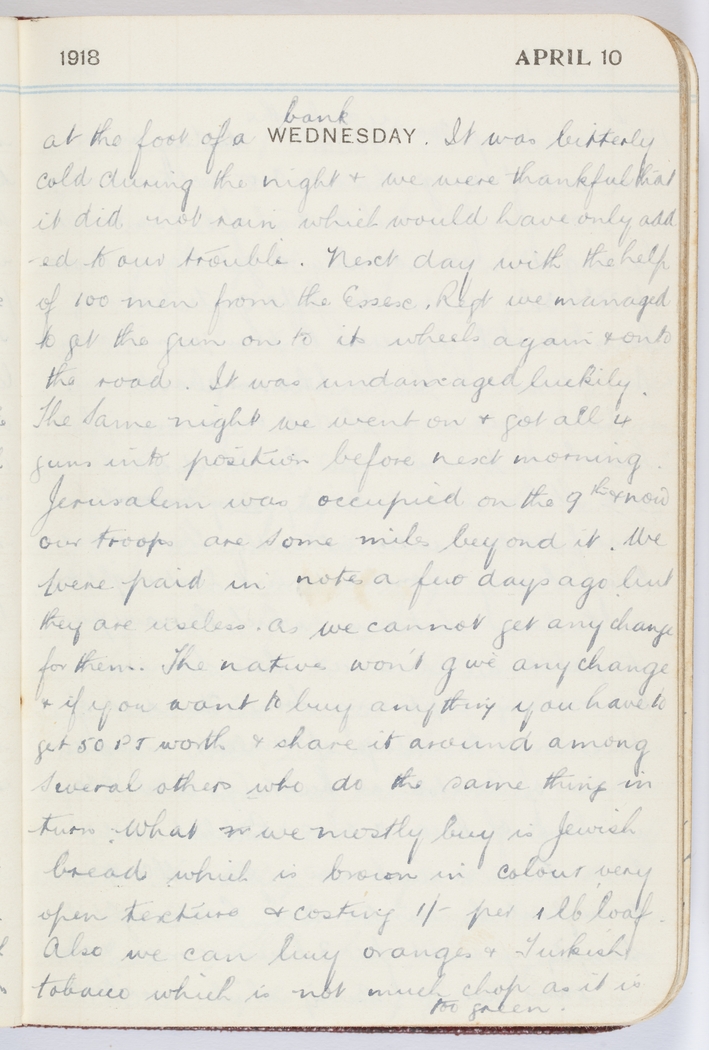 1918 APRIL 10
bank
at the foot of a WEDNESDAY. It was bitterly
cold during the night & we were thankful that
it did not rain which would have only add
-ed to our trouble. Next day with the help
of 100 men from the Essex. Regt we managed
to get the gun on to its wheels again & onto
the road. It was undamaged luckily.
The same night we went on & got all 4
guns into position before next morning.
Jerusalem was occupied on the 9th & now
our troops are some miles beyond it. We
were paid in notes a few days ago but
they are useless as we cannot get any change
for them. The natives won't give any change
& if you want to buy anything you have to
get 50 PT worth & share it around among
several others who do the same thing in
turn. What we mostly buy is Jewish
bread which is brown in colour, very
open texture & costing 1/- per 1 lb loaf.
Also we can buy oranges & Turkish
tobacco which is not much chop as it is
too green.